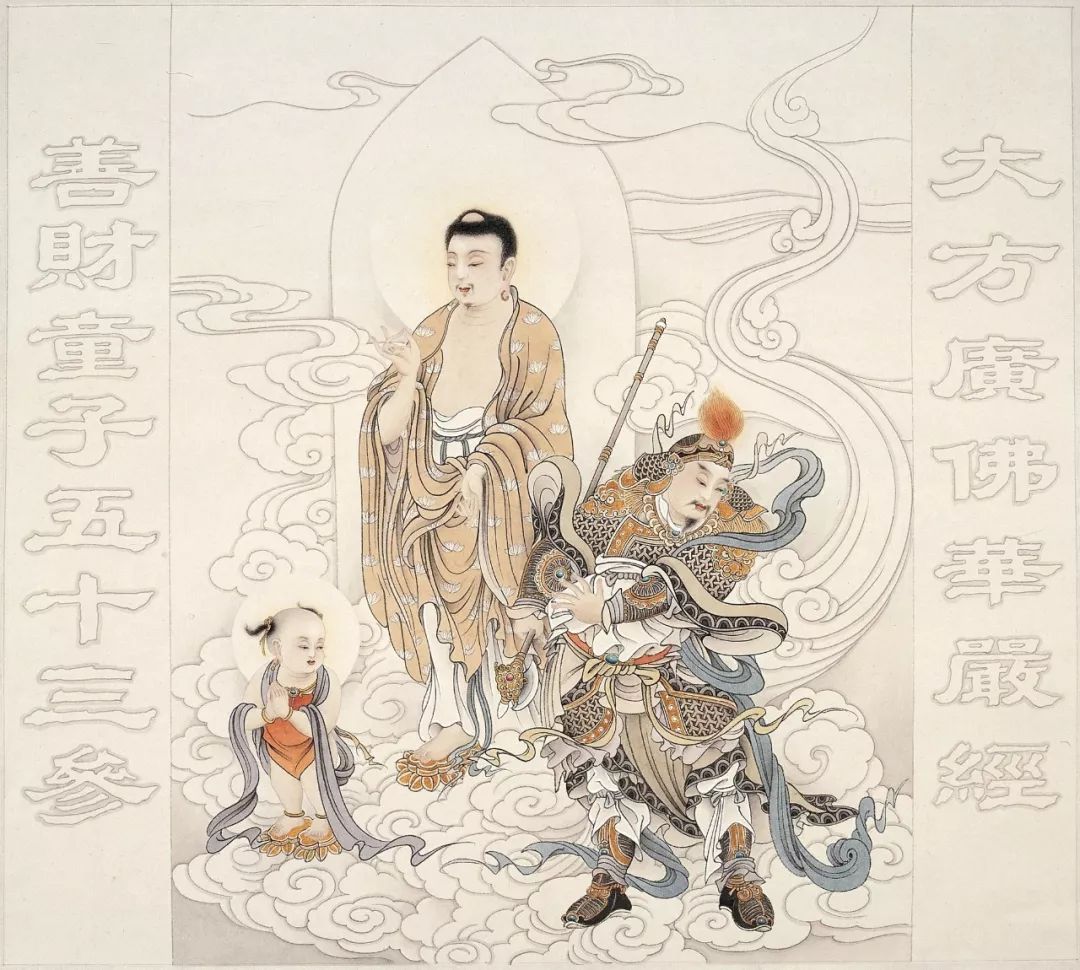 大方廣佛華嚴經
善財童子五十三參